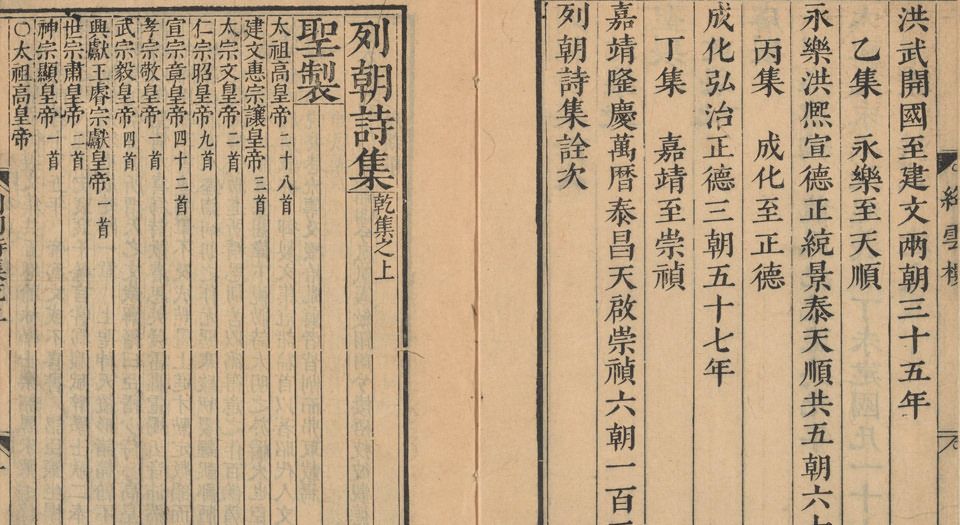 洪武開國至建文兩朝三十五年
乙集 永樂至天順
永樂洪熙宣德正統景泰天順共五朝六十
丙集 成化至正德
成化弘治正德三朝五十七年
丁集 嘉靖至崇禎
嘉靖隆慶萬曆泰昌天啟崇禎六朝一百
列朝詩集詮次
列朝詩集 乾集之上
聖製
太祖高皇帝二十八首
建文惠宗讓皇帝三首
太宗文皇帝二首
仁宗昭皇帝九首
宣宗章皇帝四十二首
孝宗敬皇帝一首
武宗毅皇帝四首
興獻王睿宗獻皇帝一首
世宗肅皇帝二首
神宗顯皇帝一首
○太祖高皇帝